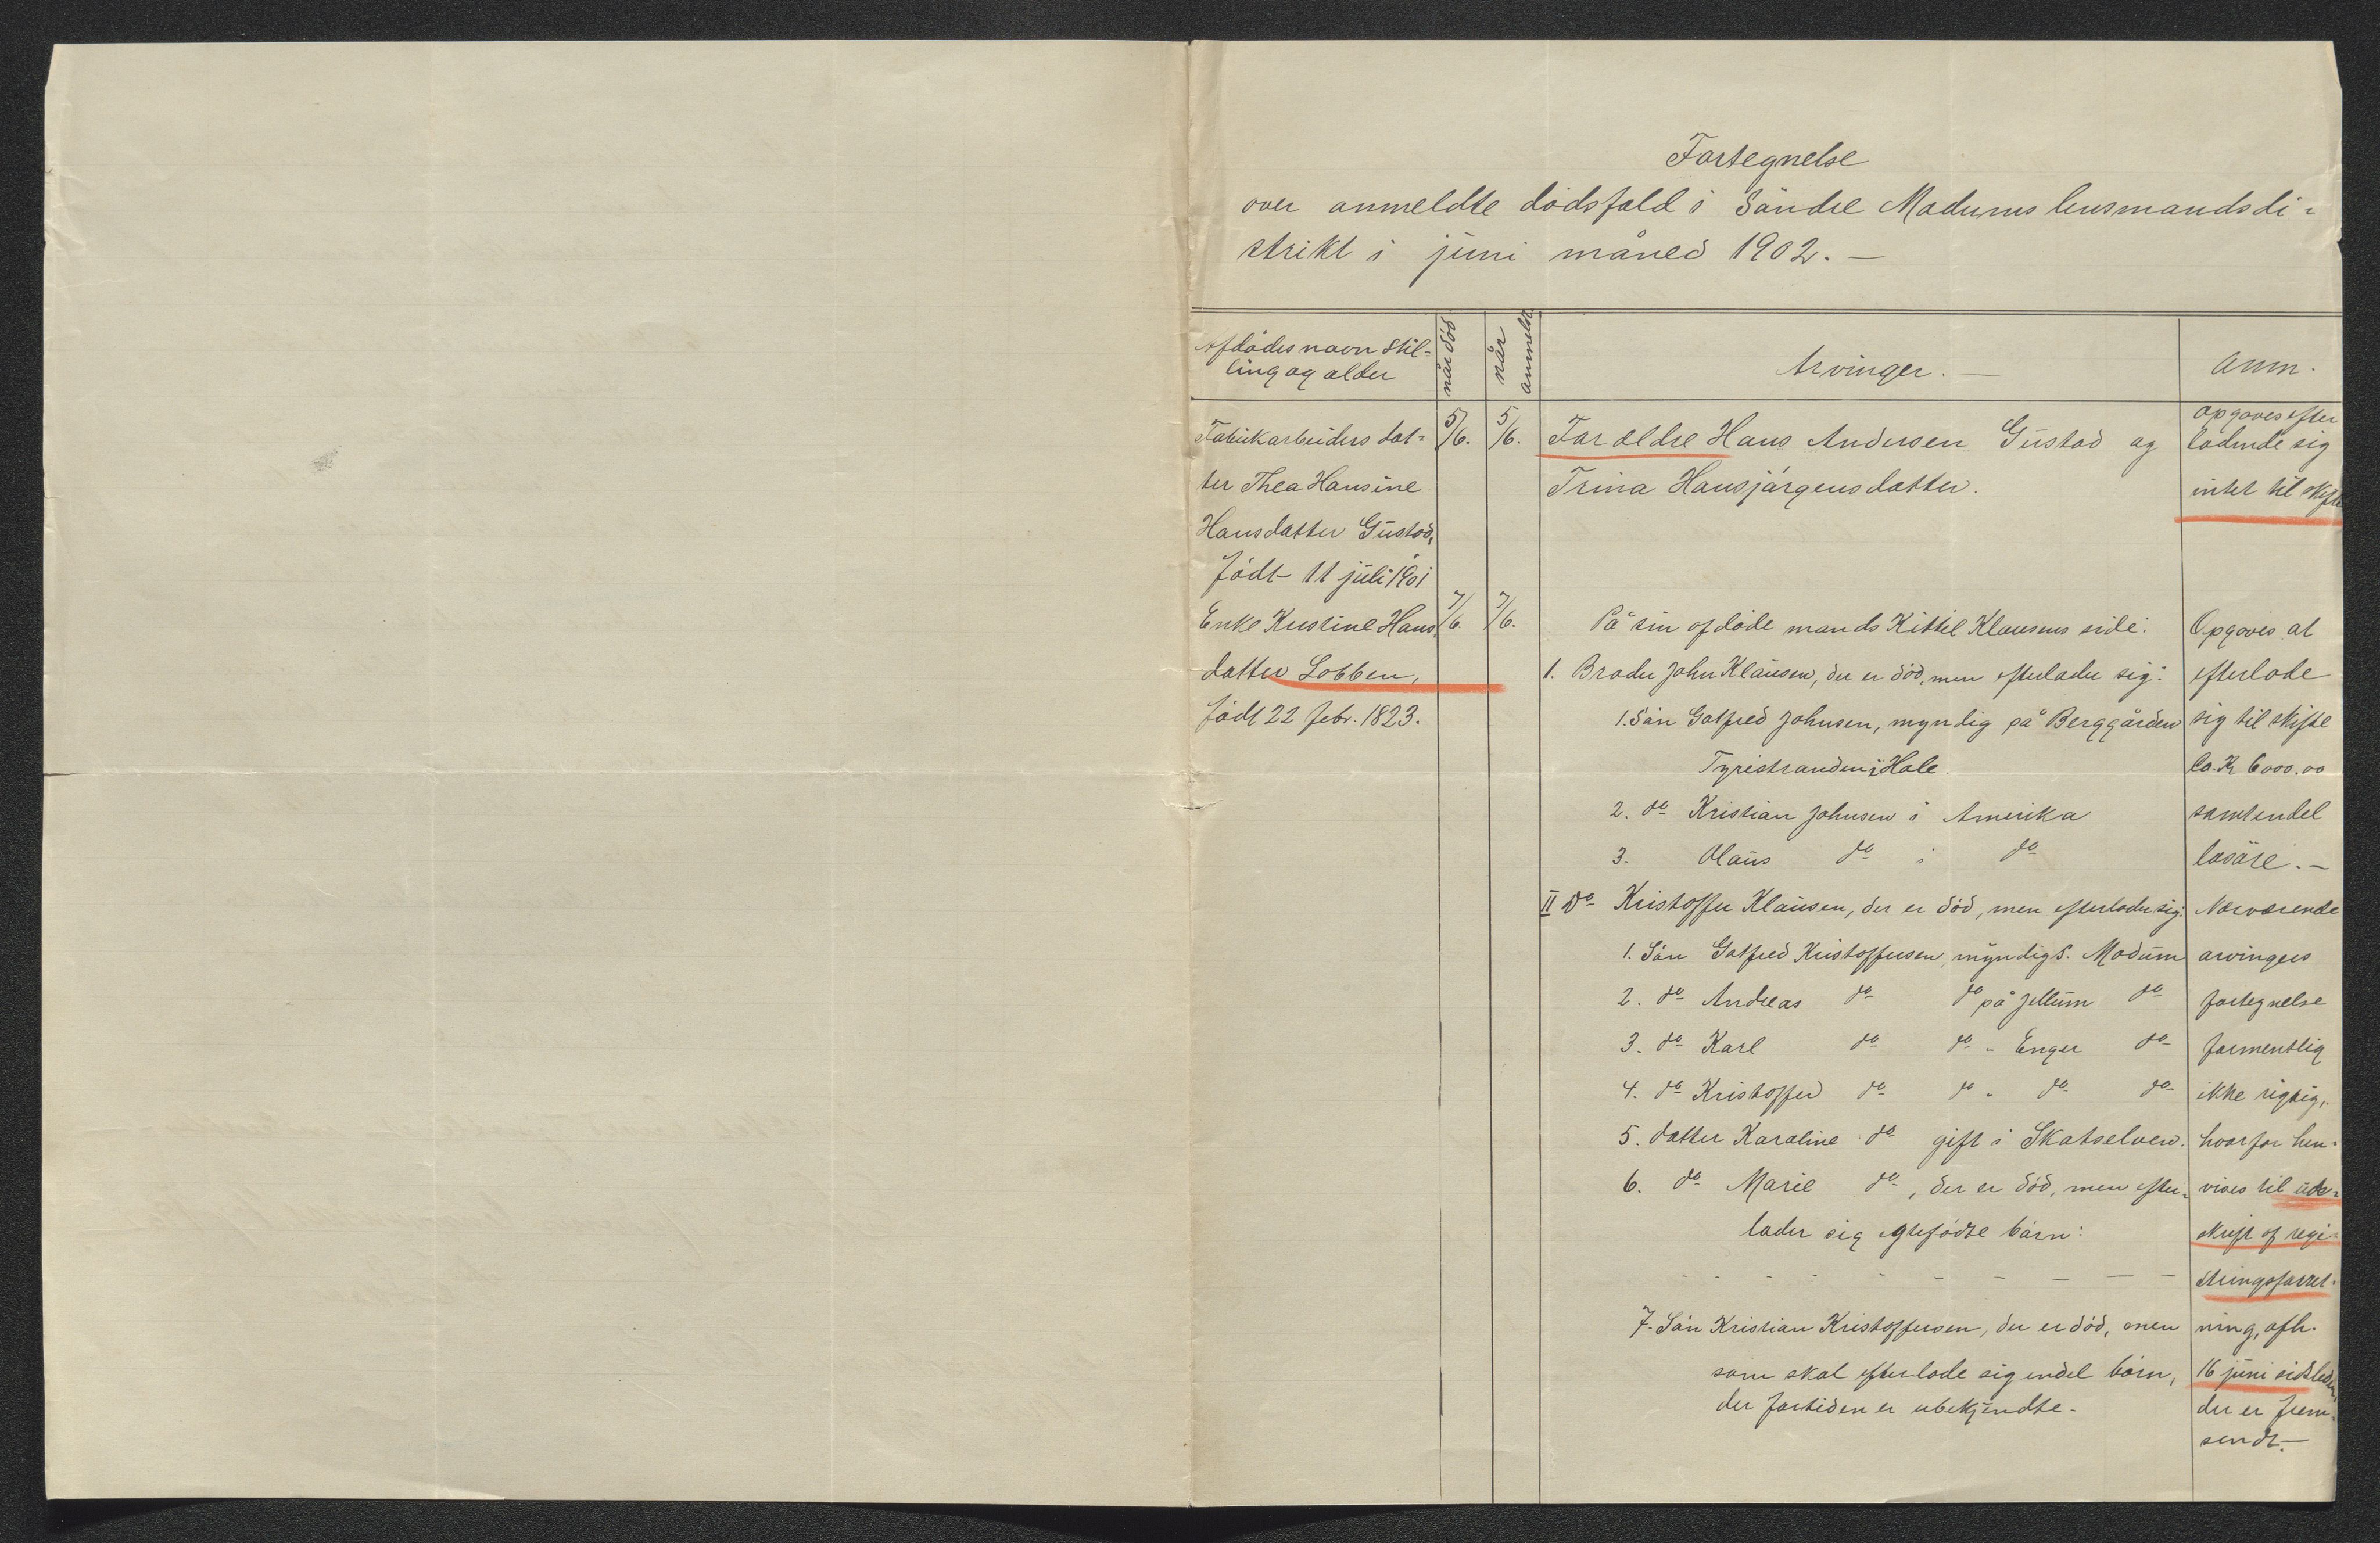 Fortegnelse
over anmeldte dødsfald i Søndre Modums lensmandsdi-
strikt i juni måned 1902. —
Afdødes navn stil-
ling og alder
når død
når anmeldt
Arvinger. —
Anm.
Fabrikarbeiders dat-
ter Thea Hansine
Hansdatter Gustad,
født 11 juli 1901
5/6.
5/6.
Forældre Hans Andersen Gustad og
Trina Hansjørgensdatter.
Opgaves efter
ladende sig
intet til skifte
Enke Kristine Hans
datter Lobben,
født 22 febr. 1823.
7/6.
7/6.
På sin afdøde mands Kittil Klausens side:
1. Broder John Klausen, der er død, men efterlader sig:
1. Søn Gotfred Johnsen, myndig på Berggården
Tyristranden i Hole.
2. do Kristian Johnsen i Amerika
3. Olaus do i do
II Do Kristoffer Klausen, der er død, men efterlader sig:
1. Søn Gotfred Kristoffersen, myndig S. Modum
2. do Andreas do do på Jellum do
3. do Karl do do - Enger do
4. do Kristoffer do do - do do
5. datter Karoline do gift i Skotselven.
6. do Marie do, der er død, men efter-
lader sig ægtefødte børn:
- - - - - - - - - -
7. Søn Kristian Kristoffersen, der er død, men
som skal efterlade sig endel børn,
der fortiden er ubekjendte.
Opgaves at
efterlade
sig til skifte
ca. Kr 6000.00
samt endel
løsøre. —
Nærværende
arvingers
fortegnelse
formentlig
ikke rigtig,
hvorfor hen-
vises til ud-
skrift af regi-
streringsforret-
ning, afh.
16 juni sidstleden,
der er frem-
sendt. —